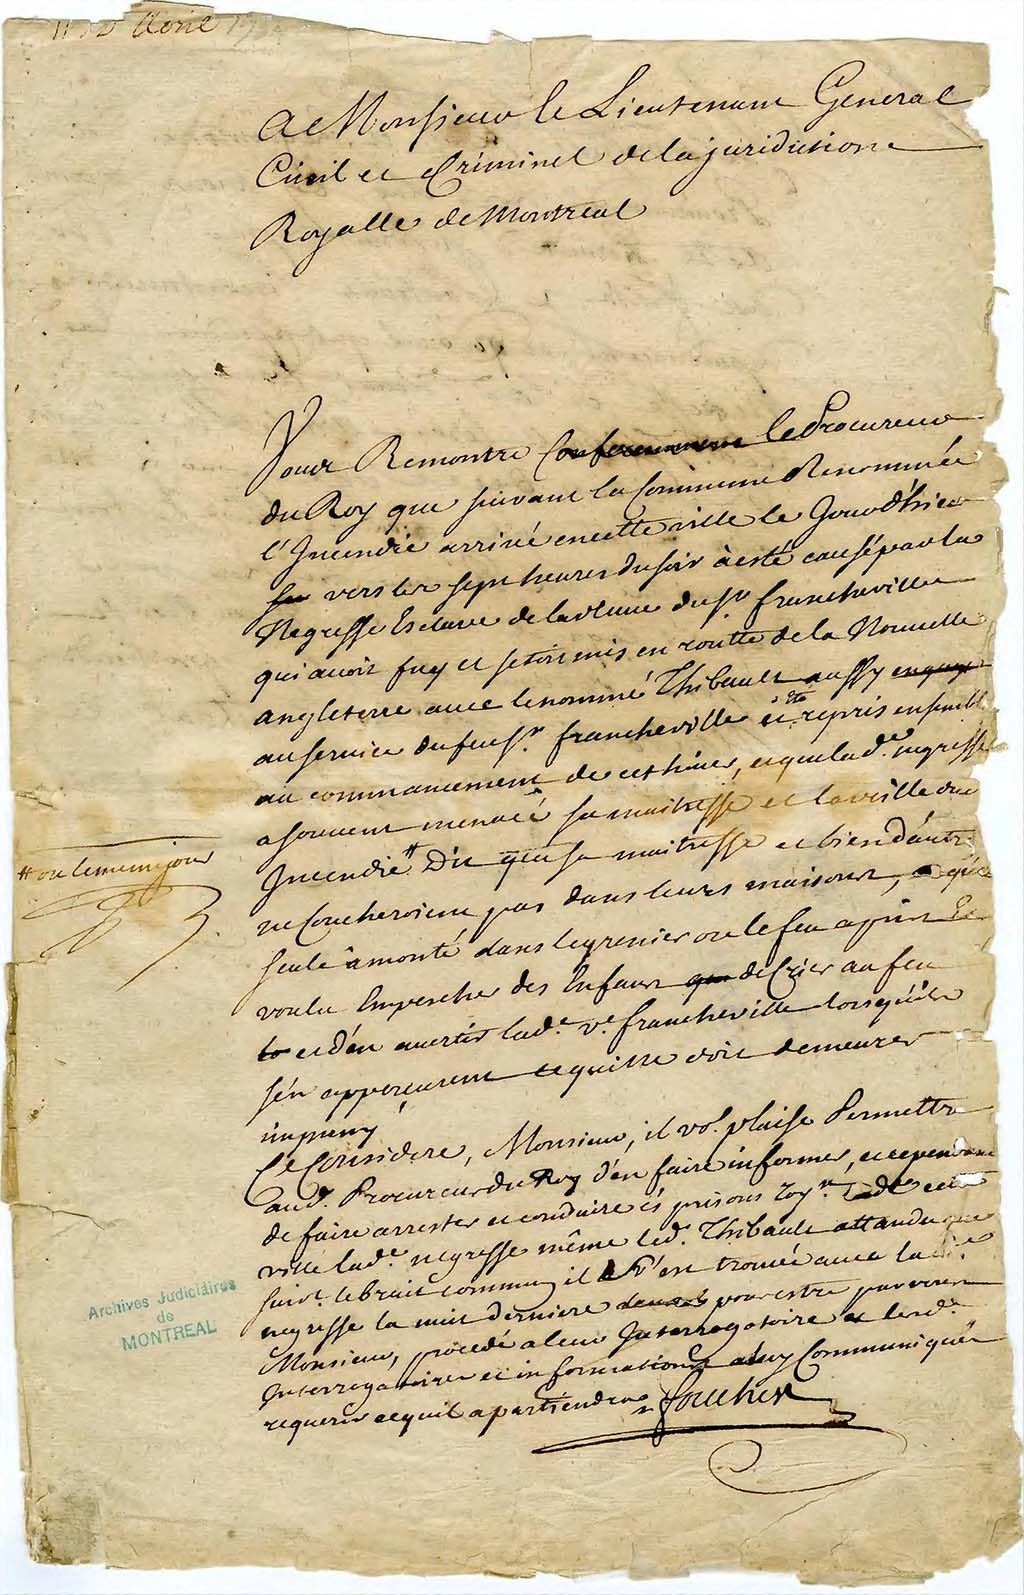 11e Avril 1734
A Monsieur le Lieutenant General
Civil et Criminel de la juridiction
Royalle de Montreal
Vous Remontre Conformement le Procureur
du Roy que suivant la Commune Renommée
l'Incendie arrivé en cette ville le Jour d'hier
sur vers les sept heures du soir à esté causé par la
Negresse Esclave de la veuve du Sr francheville
qui avoit fuy et s'etoit mis en routte de la Nouvelle
angleterre avec le nommé Thibault aussy engagé
au service du feu Sr. francheville et esté repris ensemble
au commancement de cet hiver, et que lad.e negresse
a souvent menacé sa maitresse et la veille dud
Incendie # Dit que sa maitresse et bien d'autres
ne Coucheroient pas dans leurs maisons, a qu'elle
seule à monté dans le grenier ou le feu a pris Et
voulu Empescher des Enfans que de Crier au feu
to et d'en avertir lad.e v.e francheville lorsqu'ils
s'en apperçeurent ce qui ne doit demeurer
impuny
# ou le meme jour
Ce Consideré, Monsieur, il vo.s plaise Permettre
aud. Procureur du Roy d'en faire informer, et cependant
de faire arrester et conduire és prisons roy.es de cette
ville lad.e negresse même led. Thibault attendu que
suiv.t le bruit commun il s'est trouvé avec lad.e
negresse la nuit derniere pour estre par vous
Monsieur, procedé a leur Interrogatoire et lesd.
Interrogatoires et informations a luy Communiqués
requerir ce quil apartiendra
foucher
Archives Judiciaires
de
MONTREAL